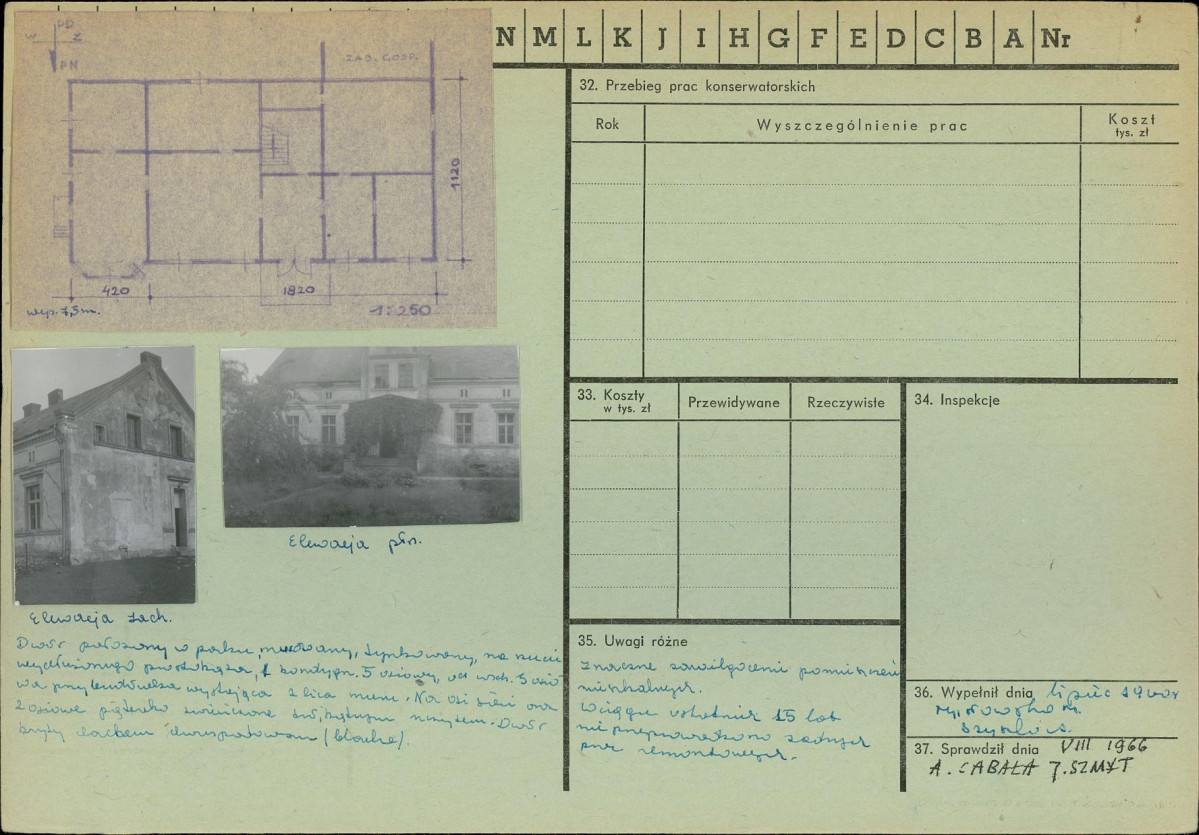 N M L K J I H G F E D C B A Nr
PD
W Z
PN
ZAB. GOSP.
1120
420
1820
wys. 7,5m.
1:250
Elewacja płn.
Elewacja zach.
Dwór położony w parku, murowany, tynkowany, na rzucie
wydłużonego prostokąta, 1 kondygn. 5 osiowy, od wsch. 3 osio
wa przybudówka wystająca z lica muru. Na osi sieni oraz
2 osiowe pięterko zwieńczone trójkątnym szczytem. Dwór
kryty dachem dwuspadowym (blacha).
32. Przebieg prac konserwatorskich
Rok
Wyszczególnienie prac
Koszt
tys. zł
33. Koszty
w tys. zł
Przewidywane
Rzeczywiste
34. Inspekcje
35. Uwagi różne
znaczne zawilgocenie pomieszczeń
mieszkalnych.
W ciągu ostatnich 15 lat
nie przeprowadzono żadnych
prac remontowych.
36. Wypełnił dnia lipiec
37. Sprawdził dnia VIII 1966
A. CABAŁA J. SZMYT